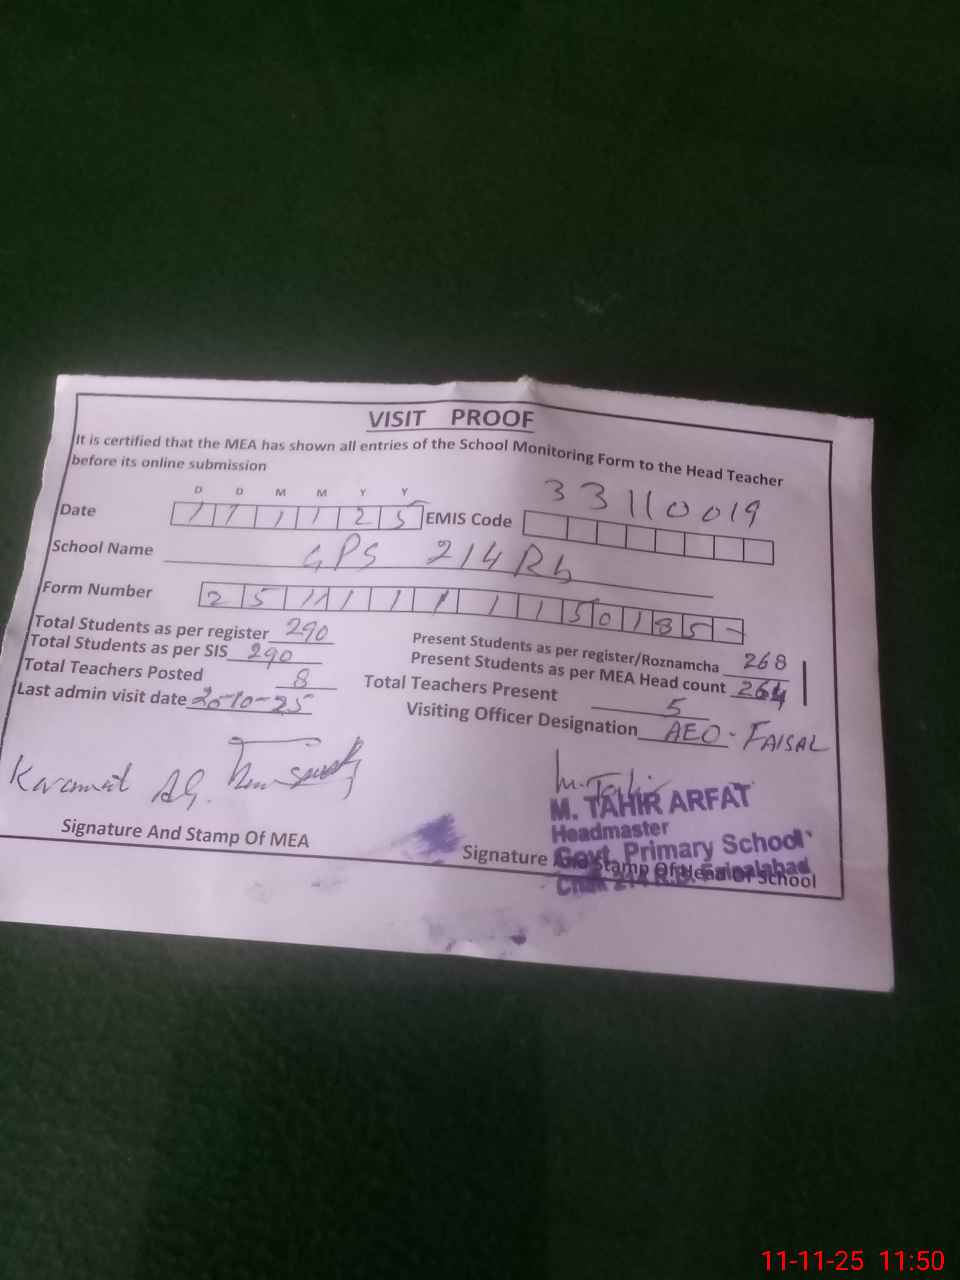 VISIT PROOF
It is certified that the MEA has shown all entries of the School Monitoring Form to the Head Teacher
before its online submission
D D M M Y Y
Date 1 1 1 1 2 5 EMIS Code 33110019
School Name GPS 214 Rb
Form Number 2 5 11 1 1 1 1 1 5 0 1 8 5 -
Total Students as per register 290 Present Students as per register/Roznamcha 268
Total Students as per SIS 290 Present Students as per MEA Head count 264
Total Teachers Posted 8 Total Teachers Present 5
Last admin visit date 20-10-25 Visiting Officer Designation AEO - FAISAL
Karamat Ali M. Tahir
M. TAHIR ARFAT
Headmaster
Govt. Primary School
Chak 214 R.B. Faisalabad
Signature And Stamp Of MEA Signature And Stamp Of Head Of School
11-11-25 11:50